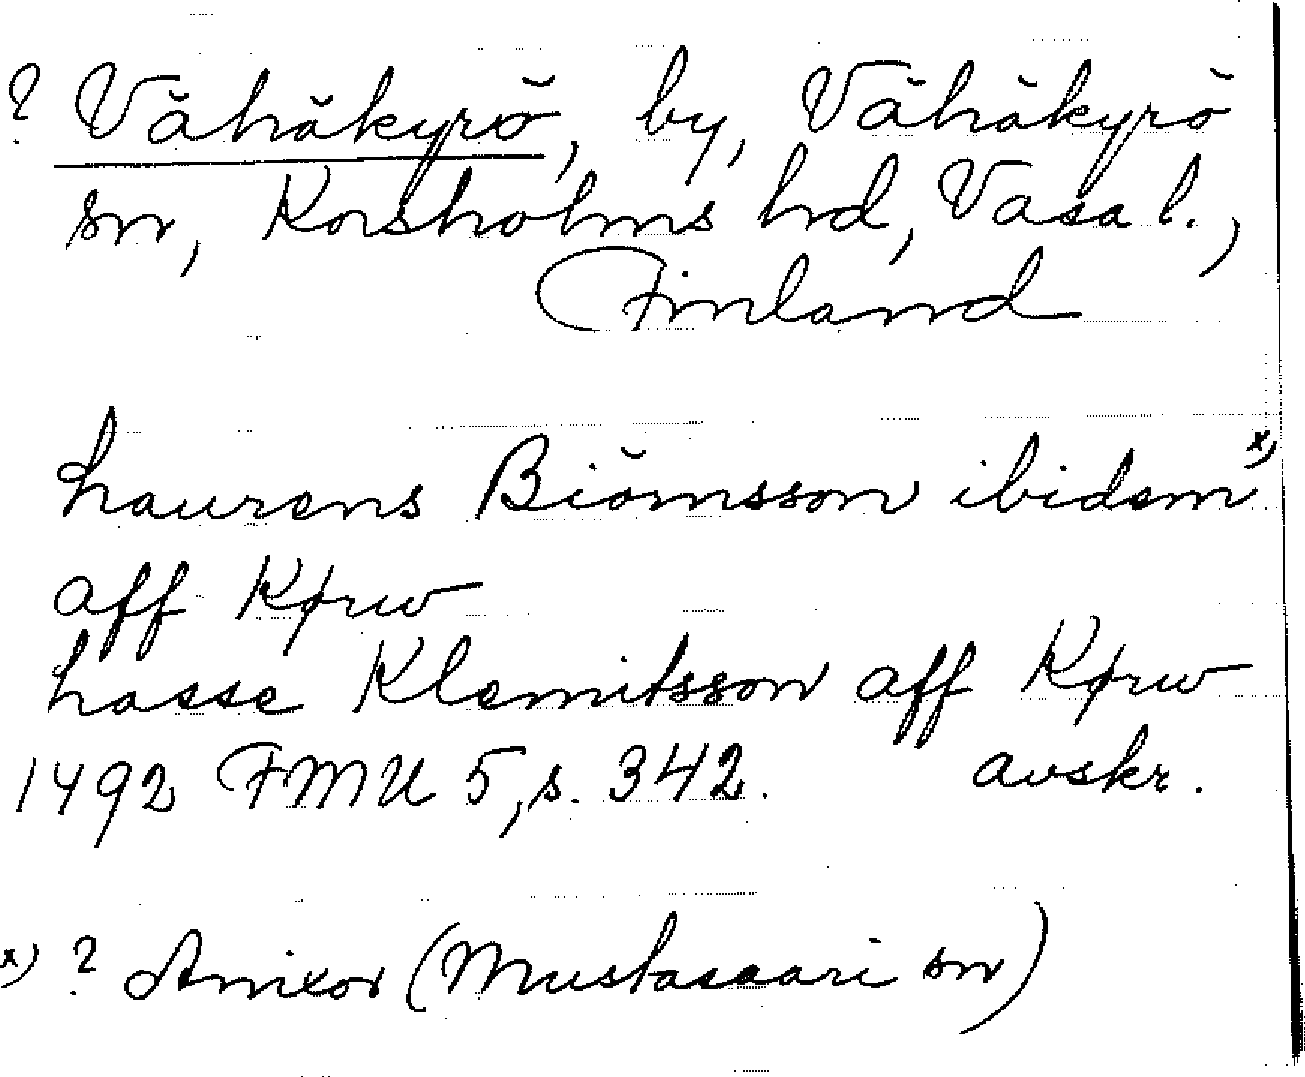 ? Vähäkyrö, by, Vähäkyrö
sn, Korsholms hrd, Vasa l.,
Finland
haurens Biörnsson ibidem x)
aff Kørw
hasse Klemitsson aff Kørw
1492 FMU 5, s. 342. avskr.
x) ? Anixor (Mustasaari sn)